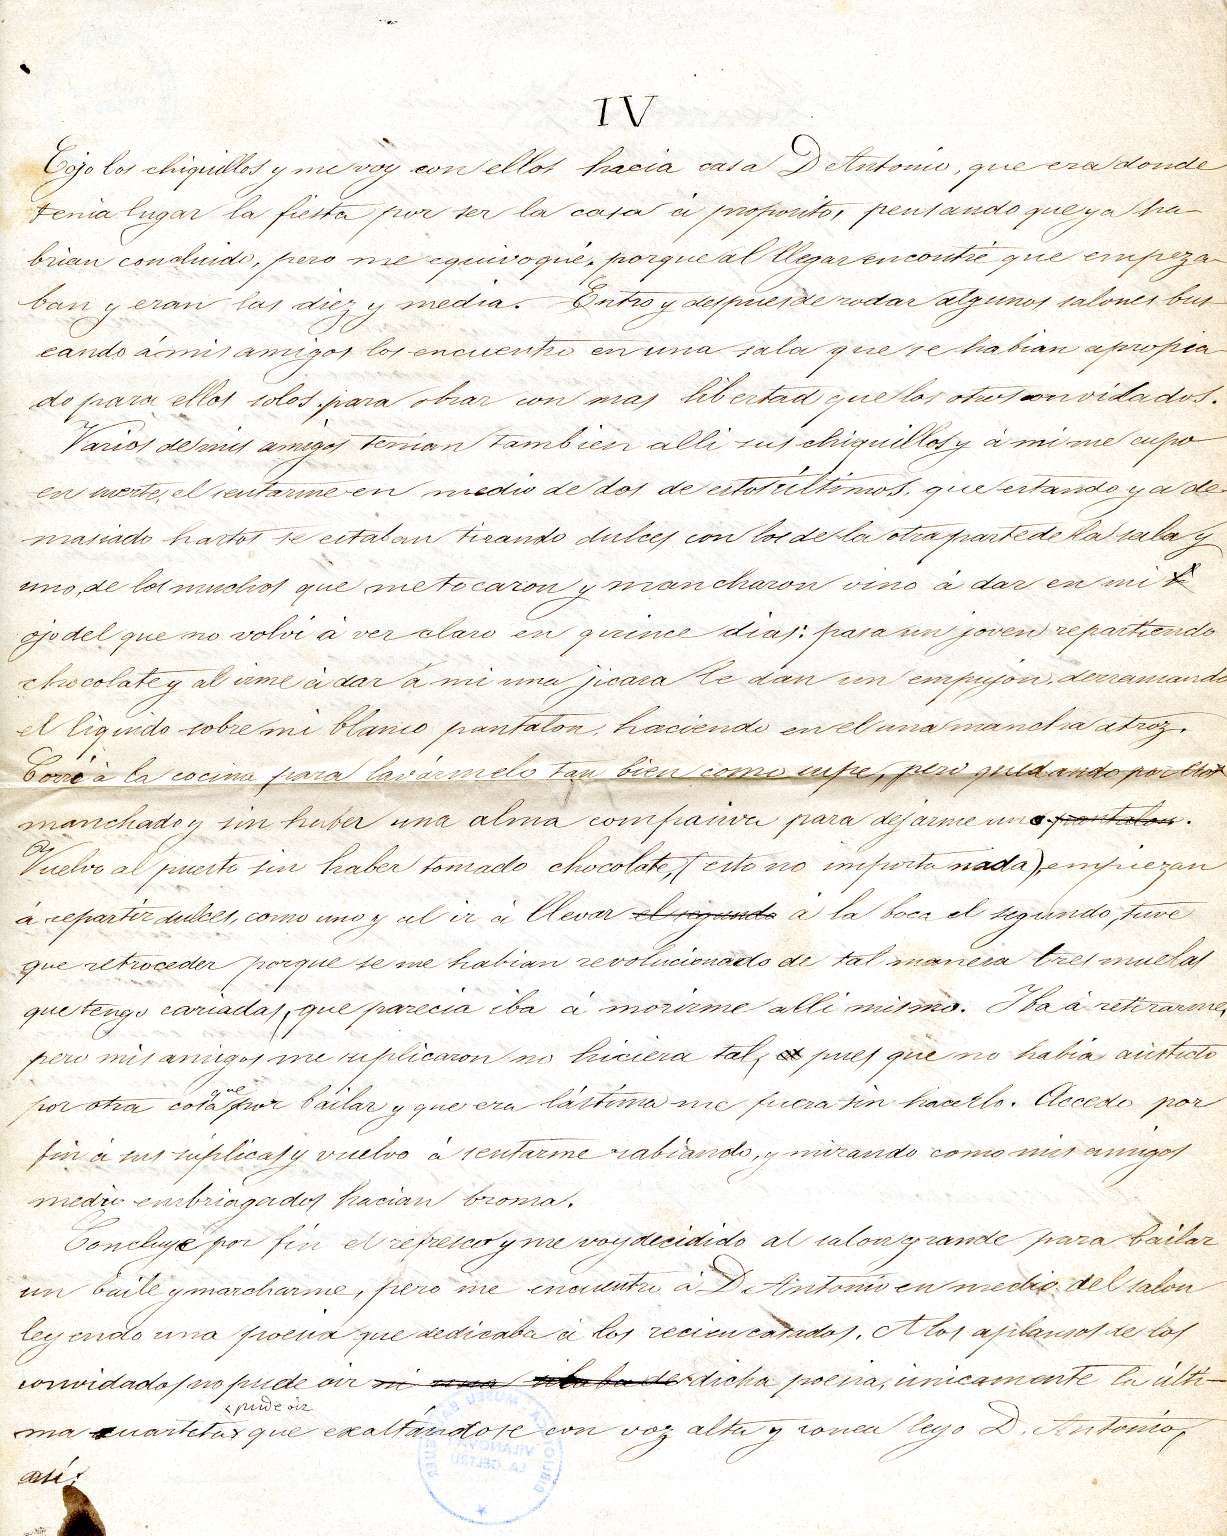 IV
Cojo los chiquillos y me voy con ellos hacia casa D Antonio, que era donde
tenia lugar la fiesta por ser la casa á proposito, pensando que ya ha-
brian concluido, pero me equivoqué, porque al llegar encontré que empeza-
ban y eran las diez y media. Entro y despues de rodar algunos salones bus-
cando á mis amigos los encuentro en una sala que se habian apropia-
do para ellos solos para obrar con mas libertad que los otros convidados.
Varios de mis amigos tenian tambien alli sus chiquillos y á mi me cupo
en suerte, el sentarme en medio de dos de estos últimos, que estando ya de-
masiado hartos se estaban tirando dulces con los de la otra parte de la sala y
uno, de los muchos que me tocaron y mancharon vino á dar en mi
ojo del que no volví á ver claro en quince dias: pasa un joven repartiendo
chocolate y al irme á dar á mi una jicara le dan un empujón, derramando
el liquido sobre mi blanco pantalon, haciendo en el una mancha atroz.
Corré á la cocina para lavármelo tan bien como supe, pero quedando por
manchado y sin haber una alma compasiva para dejarme uno pantalon.
Vuelvo al puesto sin haber tomado chocolate, (esto no importa nada), empiezan
á repartir dulces, como uno y al ir á llevar el segundo á la boca el segundo, tuve
que retroceder porque se me habian revolucionado de tal manera tres muelas
que tengo cariadas, que parecia iba á morirme alli mismo. Iba á retirarme,
pero mis amigos me suplicaron no hiciera tal, pues que no habia asistido
por otra cosa que por bailar y que era lástima me fuera sin hacerlo. Accedo por
fin á sus súplicas y vuelvo á sentarme rabiando, y mirando como mis amigos
medio embriagados hacian broma.
Concluye por fin el refresco y me voy decidido al salon grande para bailar
un baile y marcharme, pero me encuentro á D. Antonio en medio del salon
leyendo una poesia que dedicaba á los recien casados. A los aplausos de los
convidados no pude oir ni una silaba de dicha poesia, únicamente la últi-
ma cuarteta pude oir que exaltándose con voz alta y ronca leyo D. Antonio,
asi: